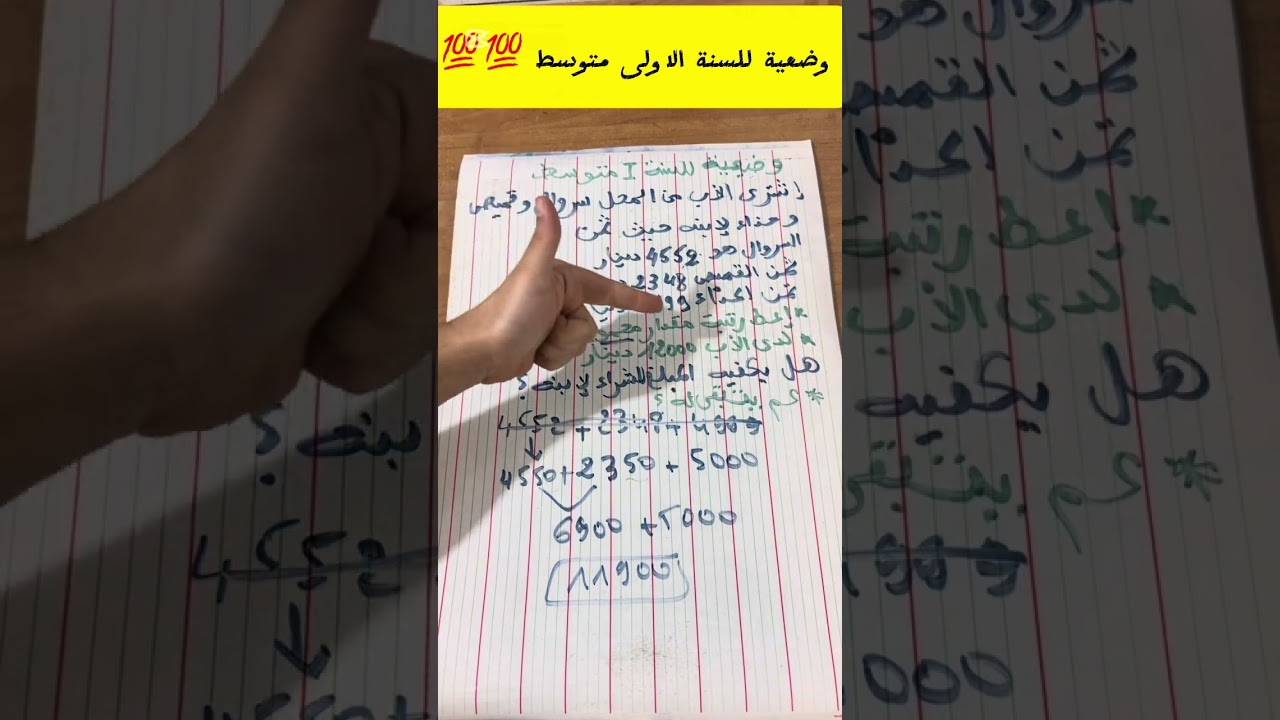 وضعية للسنة الاولى متوسط 💯💯
وضعية للسنة 1 متوسط
إشترى الأب من المحل سروال و قميص
و حذاء لإبنه حيث ثمن
السروال هو 4552 دينار
ثمن القميص 2348
ثمن الحذاء 99
* إعط رتبت مقدار
* لدى الأب 12000 دينار
هل يكفيه المبلغ للشراء لإبنه ؟
* كم يتبقى له ؟
4552 + 2348 + 4999
4550 + 2350 + 5000
6900 + 5000
11900